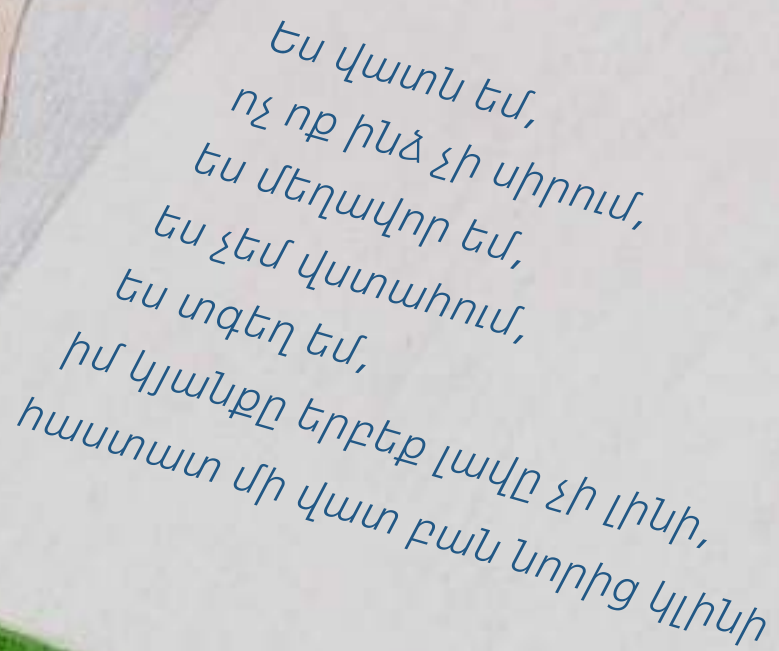 Ես վատն եմ,
ոչ ոք ինձ չի սիրում,
ես մեղավոր եմ,
ես չեմ վստահում,
ես տգեղ եմ,
իմ կյանքը երբեք լավը չի լինի,
հաստատ մի վատ բան նորից կլինի